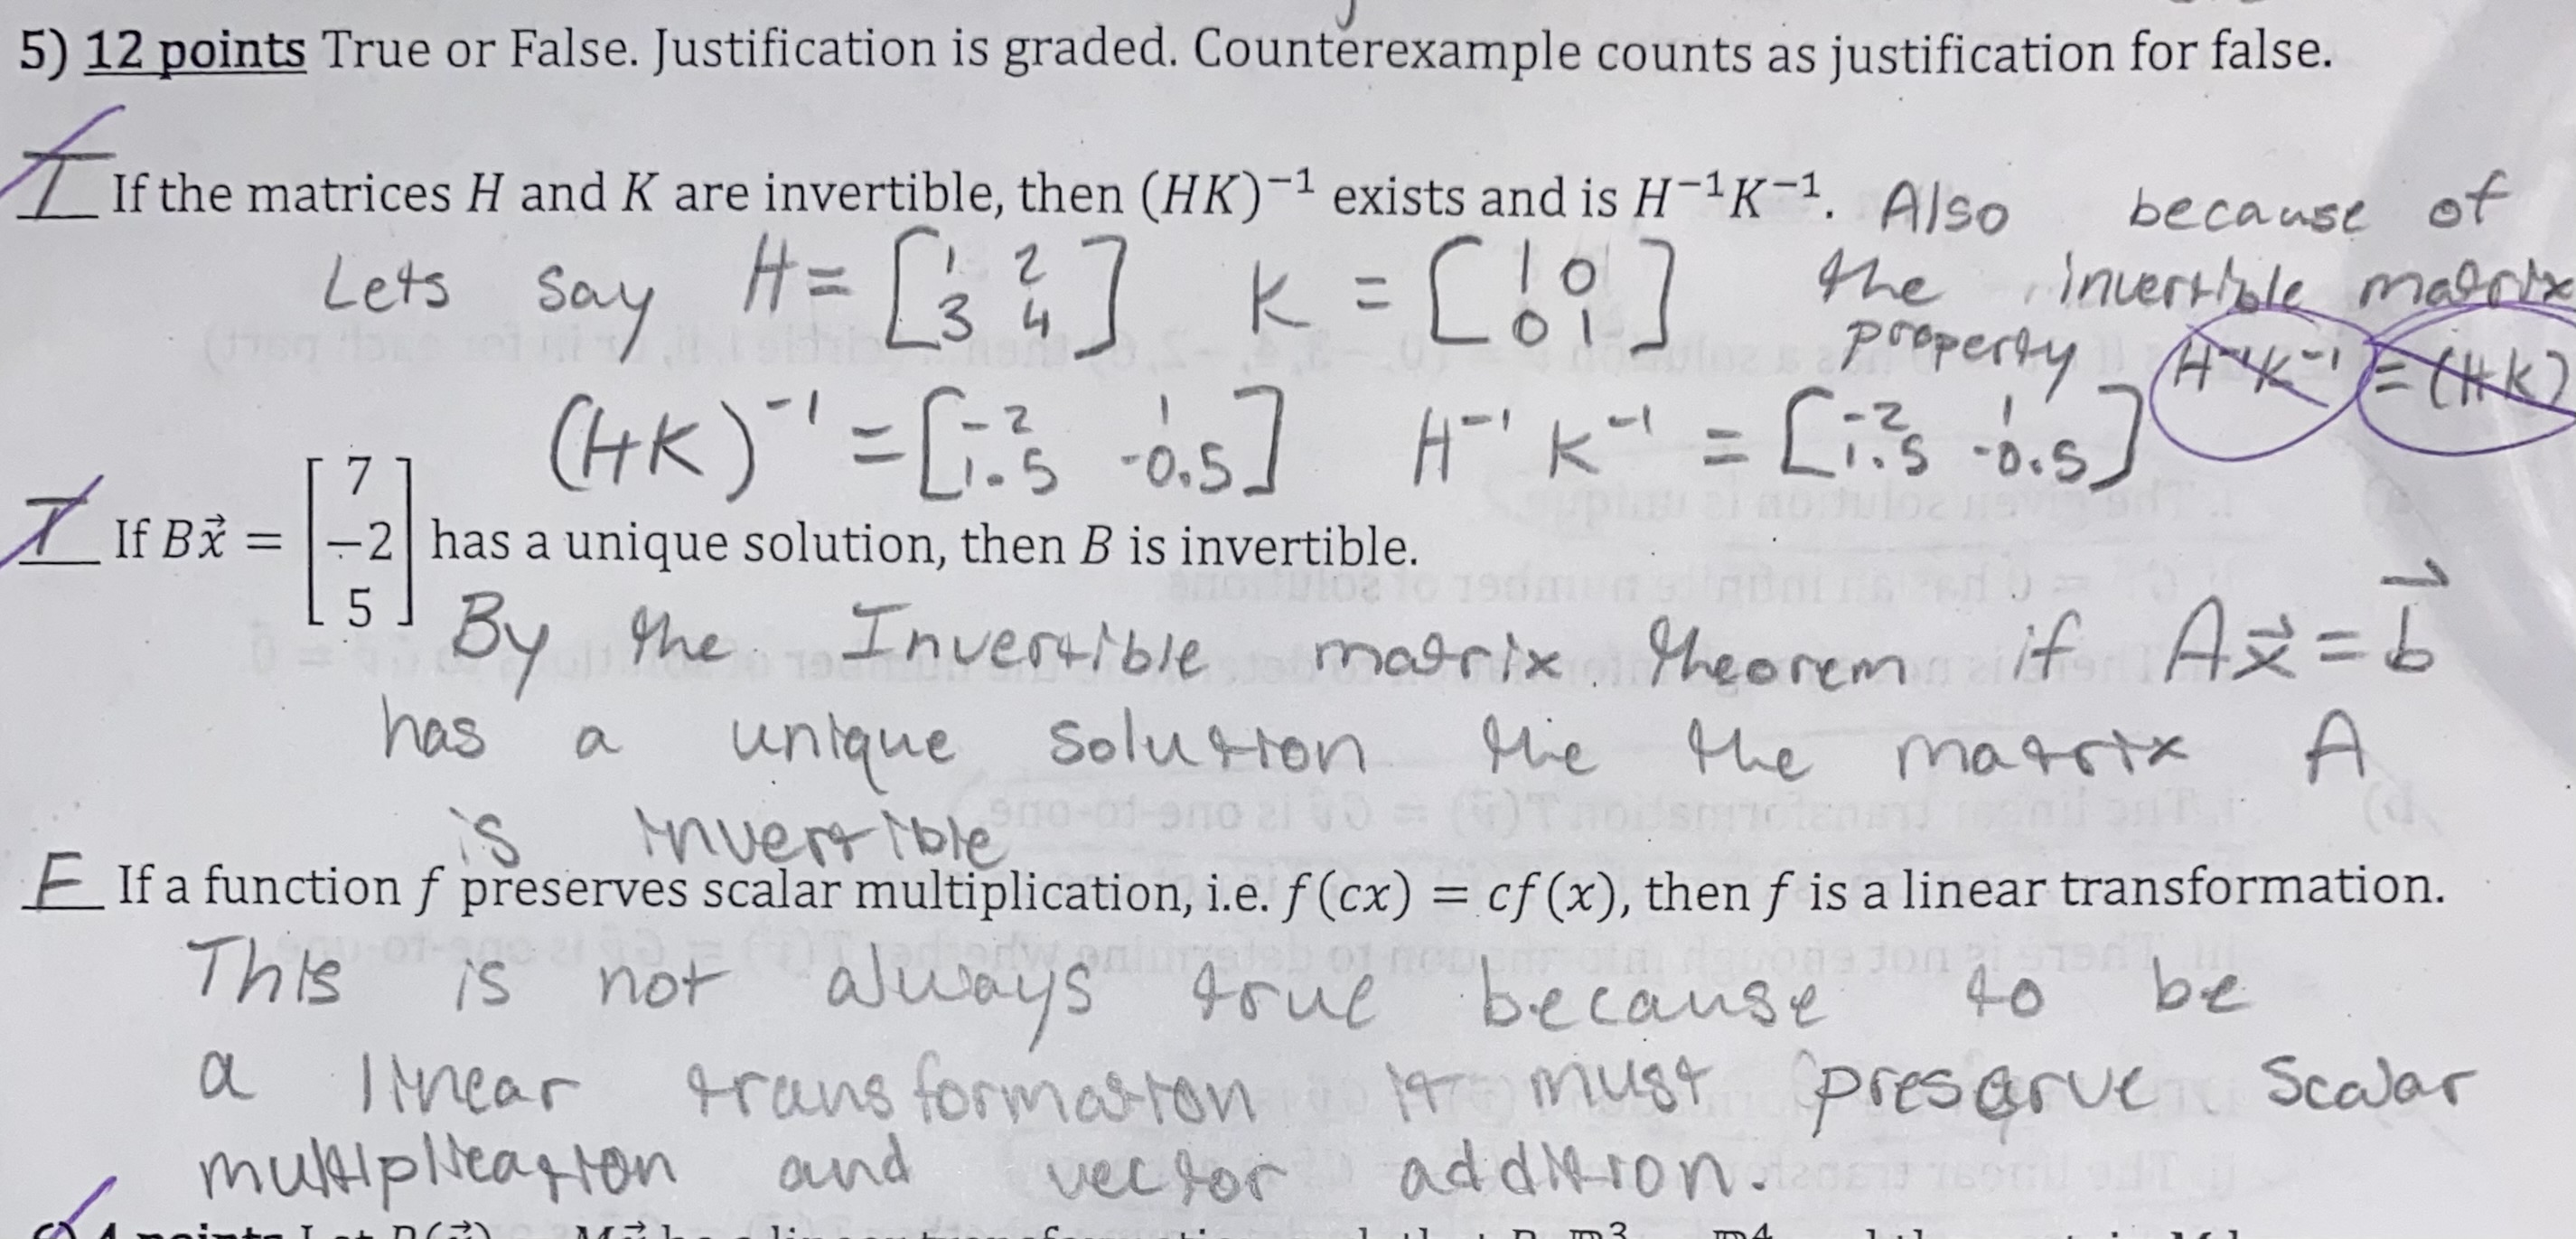 5) 12 points True or False. Justification is graded. Counterexample counts as justification for false.
T If the matrices H and K are invertible, then (HK)⁻¹ exists and is H⁻¹K⁻¹. Also because of
the invertible matrix
property H⁻¹K⁻¹ = (HK)
Lets say H = [1 2; 3 4] K = [1 0; 0 1]
(HK)⁻¹ = [-2 1; 1.5 -0.5] H⁻¹ K⁻¹ = [-2 1; 1.5 -0.5]
T If Bx⃗ = [7; −2; 5] has a unique solution, then B is invertible.
By the Invertible matrix theorem if Ax⃗ = b⃗
has a unique solution the the matrix A
is invertible
F If a function f preserves scalar multiplication, i.e. f(cx) = cf(x), then f is a linear transformation.
This is not always true because to be
a linear transformation it must preserve scalar
multiplication and vector addition.